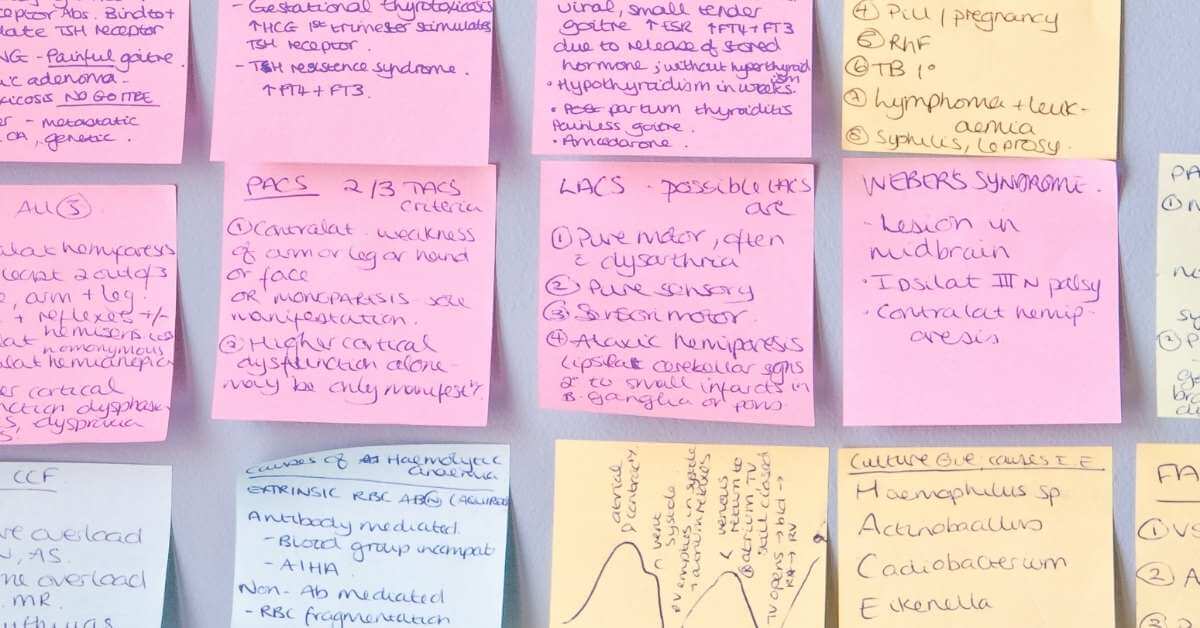 eptor Abs. Bind to +
late TSH receptor
NG - Painful goitre.
ic adenoma -
icosis NO GOITRE
er - metastatic
CA, genetic.
- Gestational thyrotoxicosis
↑HCG 1st trimester stimulates
TSH receptor.
- TSH resistence syndrome.
↑FT4 + FT3.
viral, small tender
goitre ↑ESR ↑FT4+FT3
due to release of stored
hormone ; without hyperthyroid
ism
• Hypothyroidism in weeks.
• Post partum thyroiditis
Painless goitre.
• Amiodarone.
④ Pill / pregnancy
⑤ RhF
⑥ TB 1°
⑦ Lymphoma + leuk-
aemia
⑧ Syphilis, Leprosy.
All ③
alat hemiparesis
least 2 out of 3
e, arm + leg.
+ reflexes +/-
hemisens loss
lat homonymous
alat hemianopia
er cortical
nction dysphasia
S, dyspraxia
S.
PACS 2/3 TACS
criteria
① Contralat. weakness
of arm or leg or hand
or face
OR MONOPARESIS sole
manifestation.
② Higher cortical
dysfunction alone -
may be only manifest
LACS - possible LACS
are
① Pure motor, often
c dysarthria
② Pure sensory
③ Sensorimotor
④ Ataxic hemiparesis
(ipsilat cerebellar signs
2° to small infarcts in
B. Ganglia or pons.
WEBER'S SYNDROME.
- Lesion in
midbrain
• Ipsilat III N palsy
• Contralat hemip-
aresis
PA
①
no
sy
② P
ge
bra
di
CCF
re overload
N, AS.
me overload
MR.
ythmias
Causes of Haemolytic
anaemia
EXTRINSIC RBC ABN (ACQUIRED
Antibody mediated.
- Blood group incompat
- AIHA
Non-Ab mediated
- RBC fragmentation
atrial
contract
vent
systole
empties in systole
venous
return to
atrium TV
still closed
TV opens → bld →
RA → RV
Culture -ve causes I.E
Haemophilus sp.
Actinobacillus
Cadiobacterium
Eikenella
FA
①
② A
③